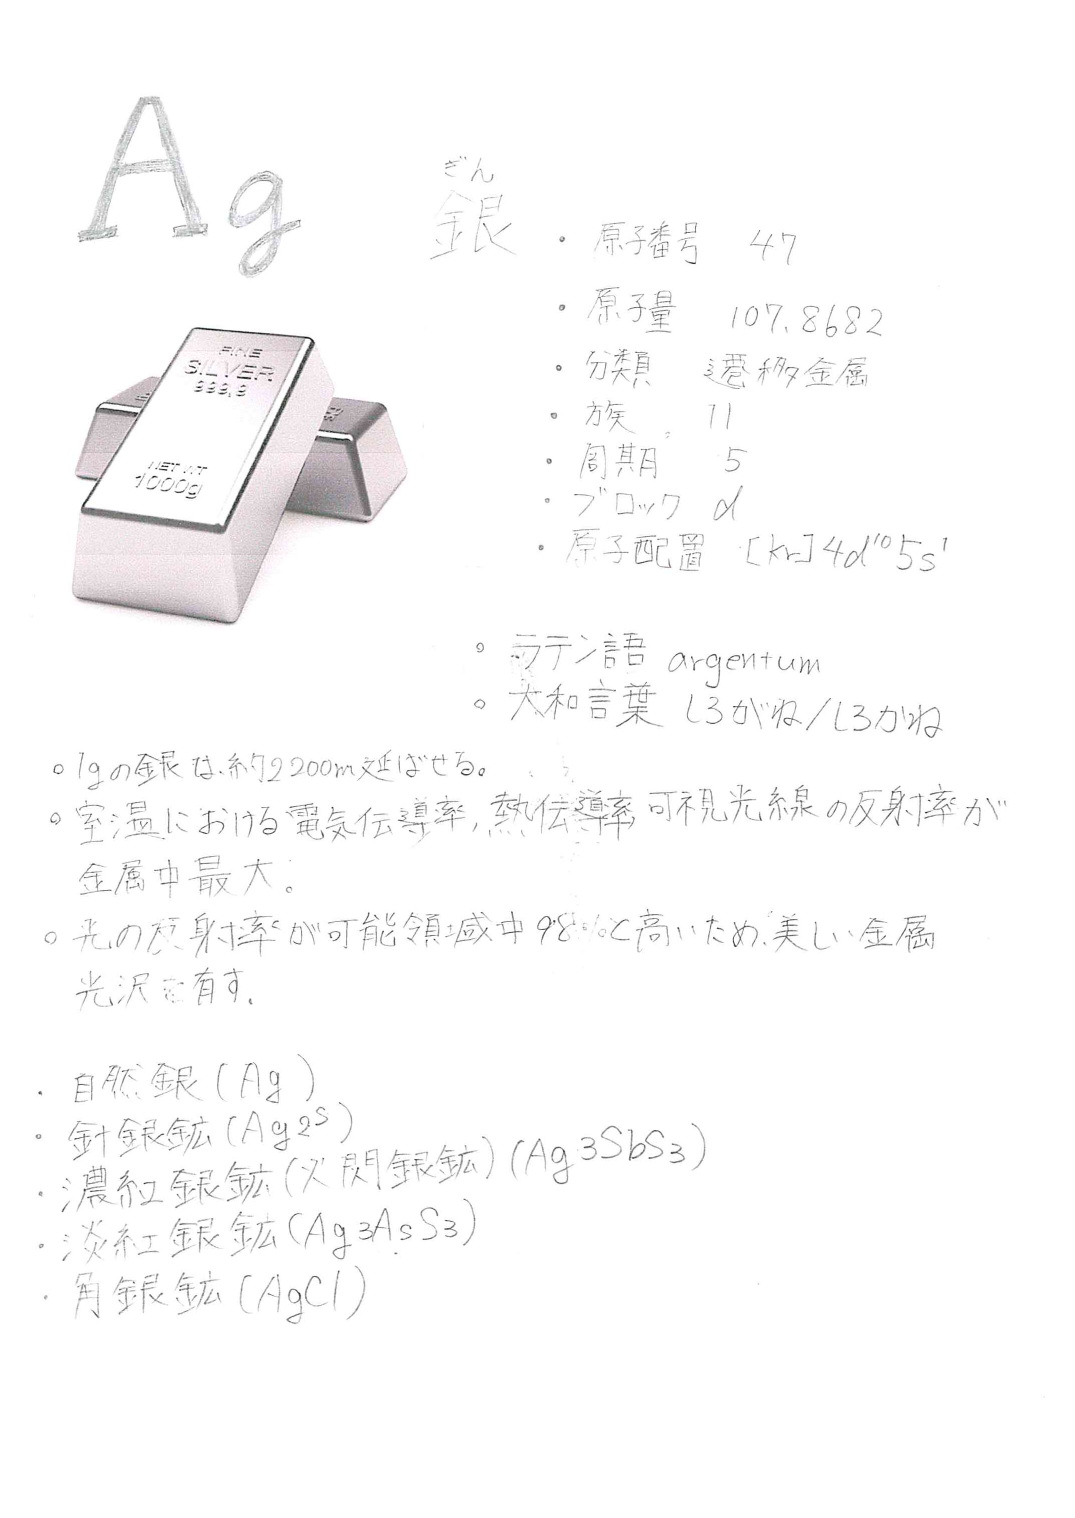 Ag
ぎん
銀
・原子番号 47
・原子量 107.8682
・分類 遷移金属
・族 11
・周期 5
・ブロック d
・原子配置 [kr]4d¹⁰5s¹
FINE
SILVER
999.9
NET WT
1000g
○ラテン語 argentum
○大和言葉 しろがね/しろかね
○1gの銀は約2200m延ばせる。
○室温における電気伝導率,熱伝導率,可視光線の反射率が
金属中最大。
○光の反射率が可能領域中98%と高いため、美しい金属
光沢を有す.
・自然銀(Ag)
・針銀鉱(Ag2S)
・濃紅銀鉱(火閃銀鉱)(Ag3SbS3)
・淡紅銀鉱(Ag3AsS3)
・角銀鉱(AgCl)